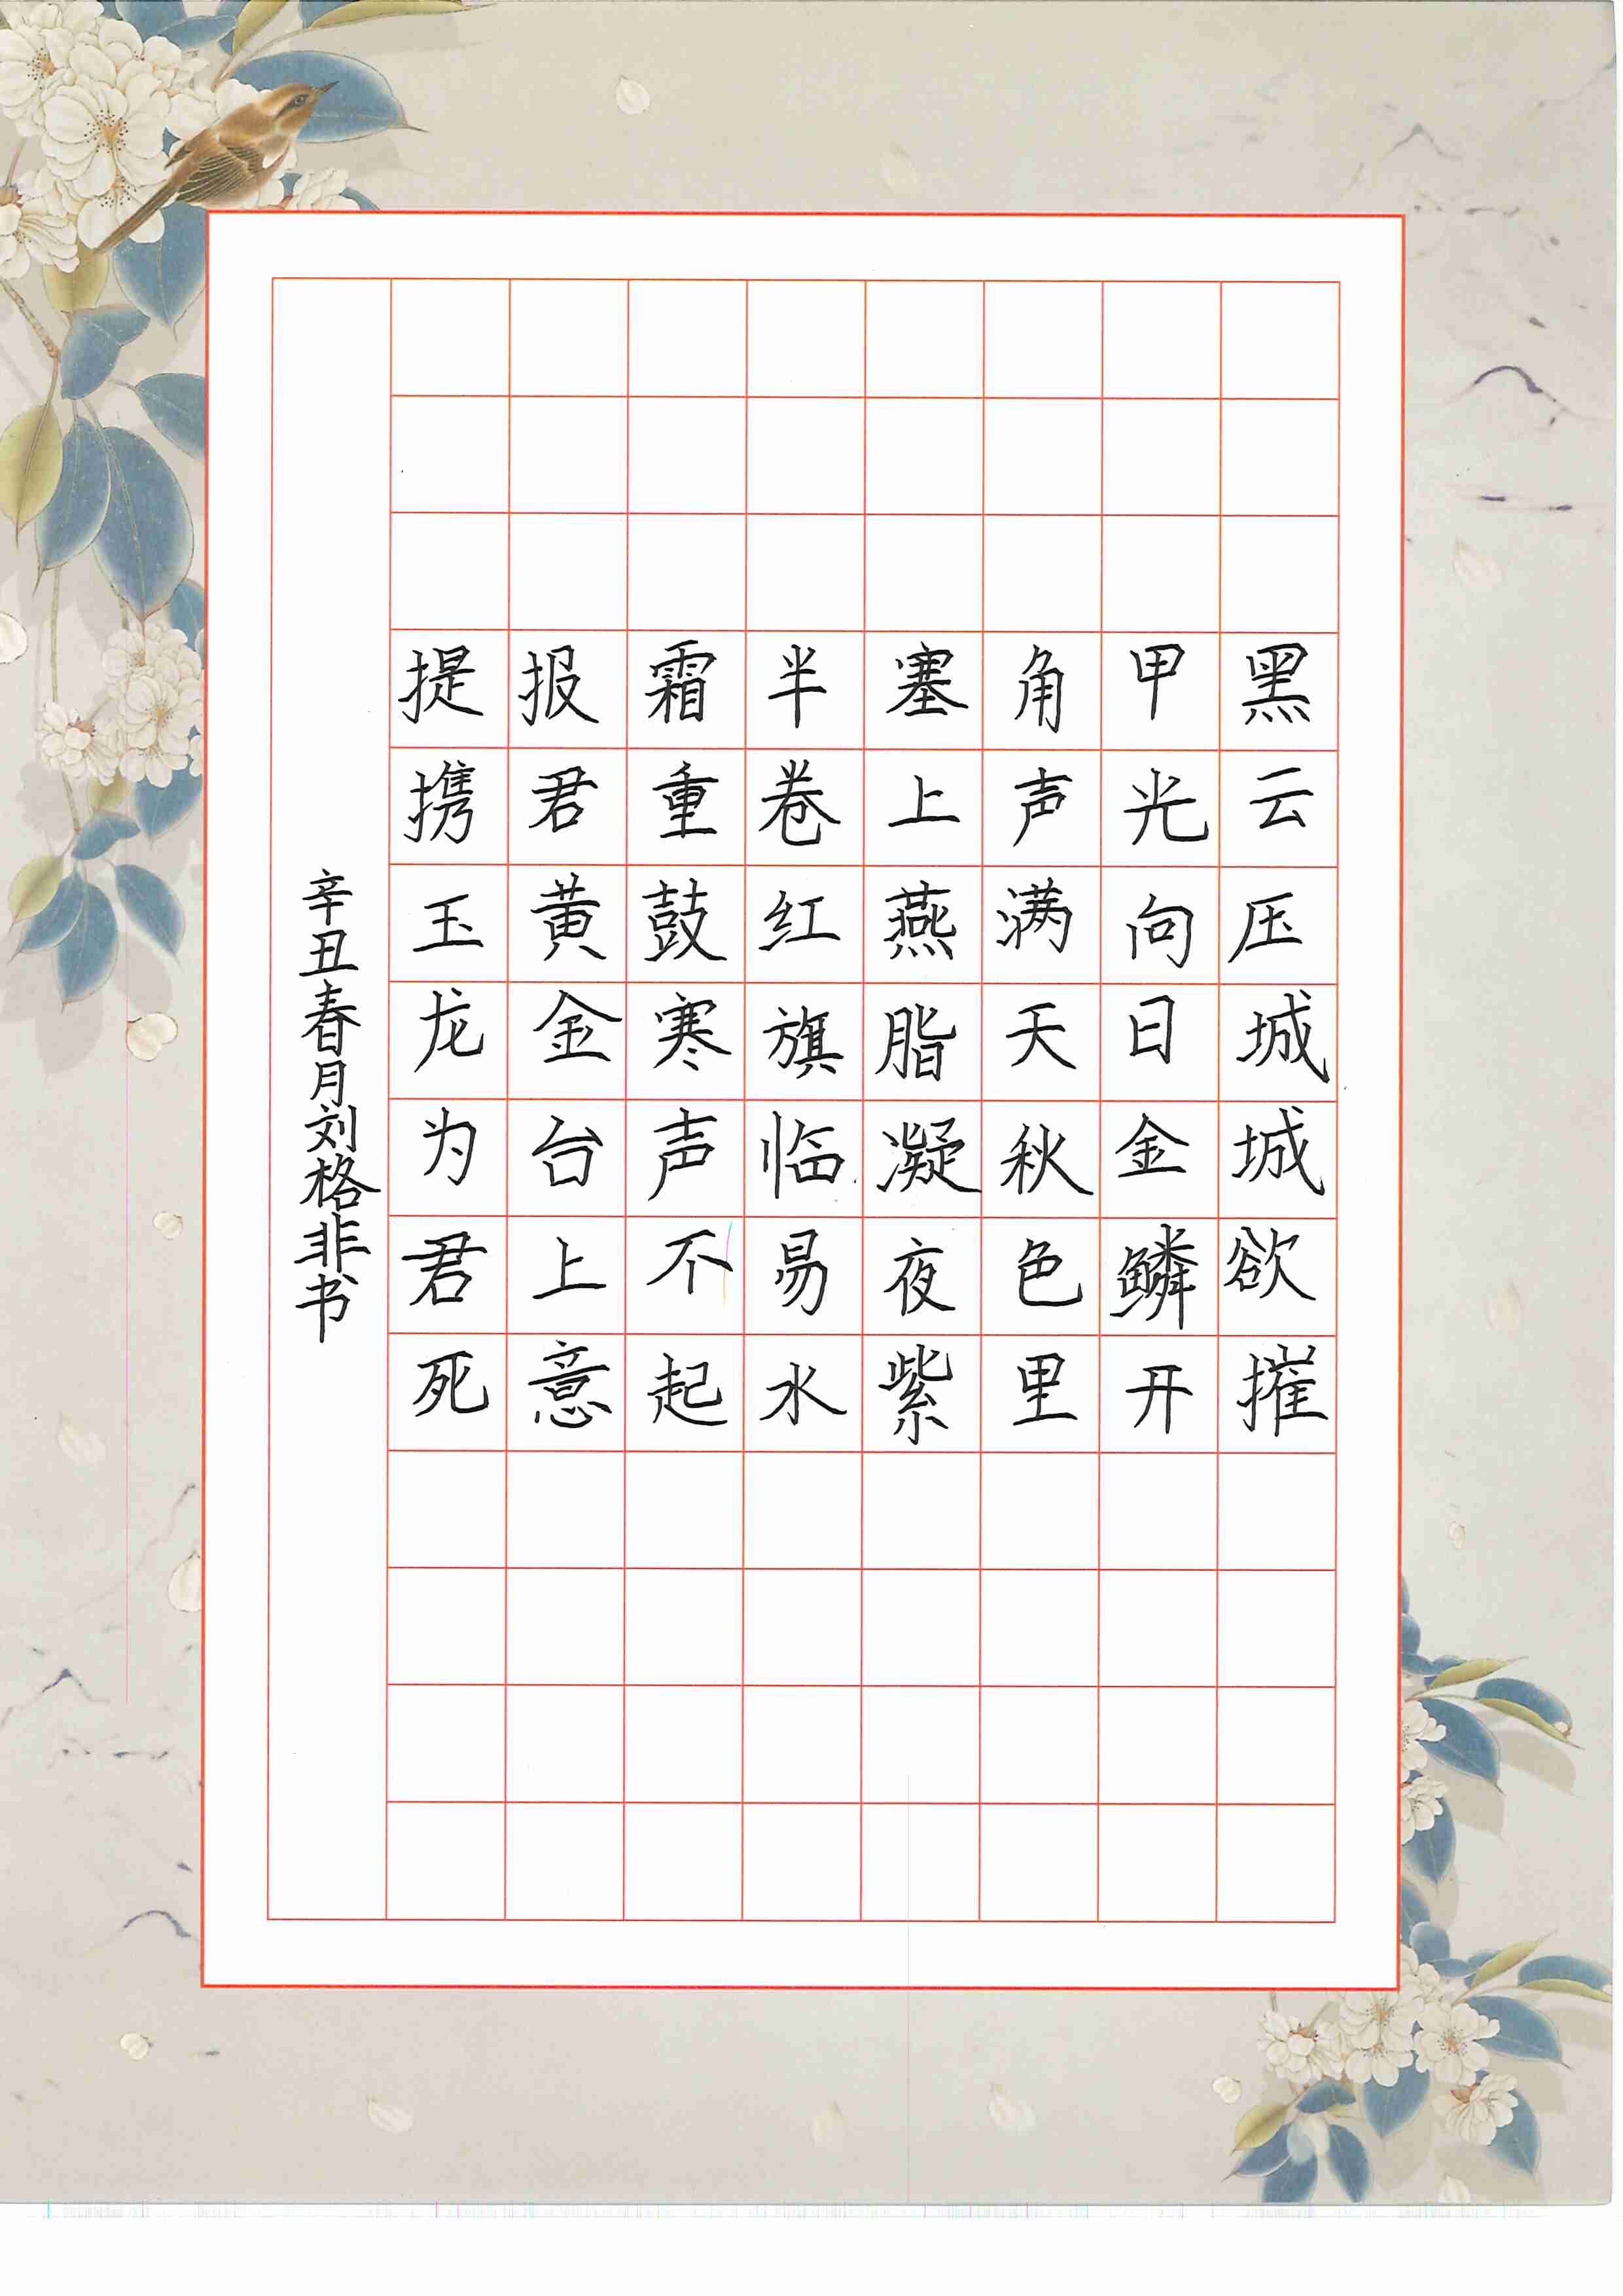 黑云压城城欲摧
甲光向日金鳞开
角声满天秋色里
塞上燕脂凝夜紫
半卷红旗临易水
霜重鼓寒声不起
报君黄金台上意
提携玉龙为君死
辛丑春月刘格非书